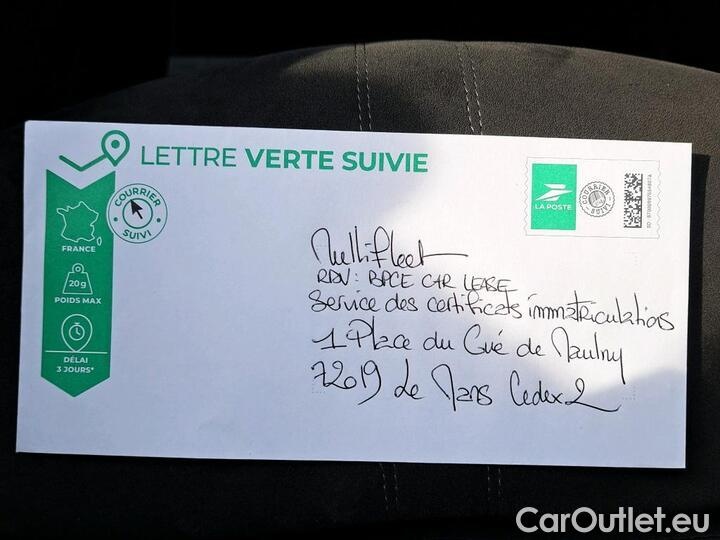 LETTRE VERTE SUIVIE
COURRIER
SUIVI
FRANCE
20g
POIDS MAX
DÉLAI
3 JOURS*
LA POSTE
COURRIER
SUIVI
Multifleet
RDV : BPCE CAR LEASE
Service des certificats immatriculations
1 Place du Gué de Maulny
72019 Le Mans Cedex 2
CarOutlet.eu